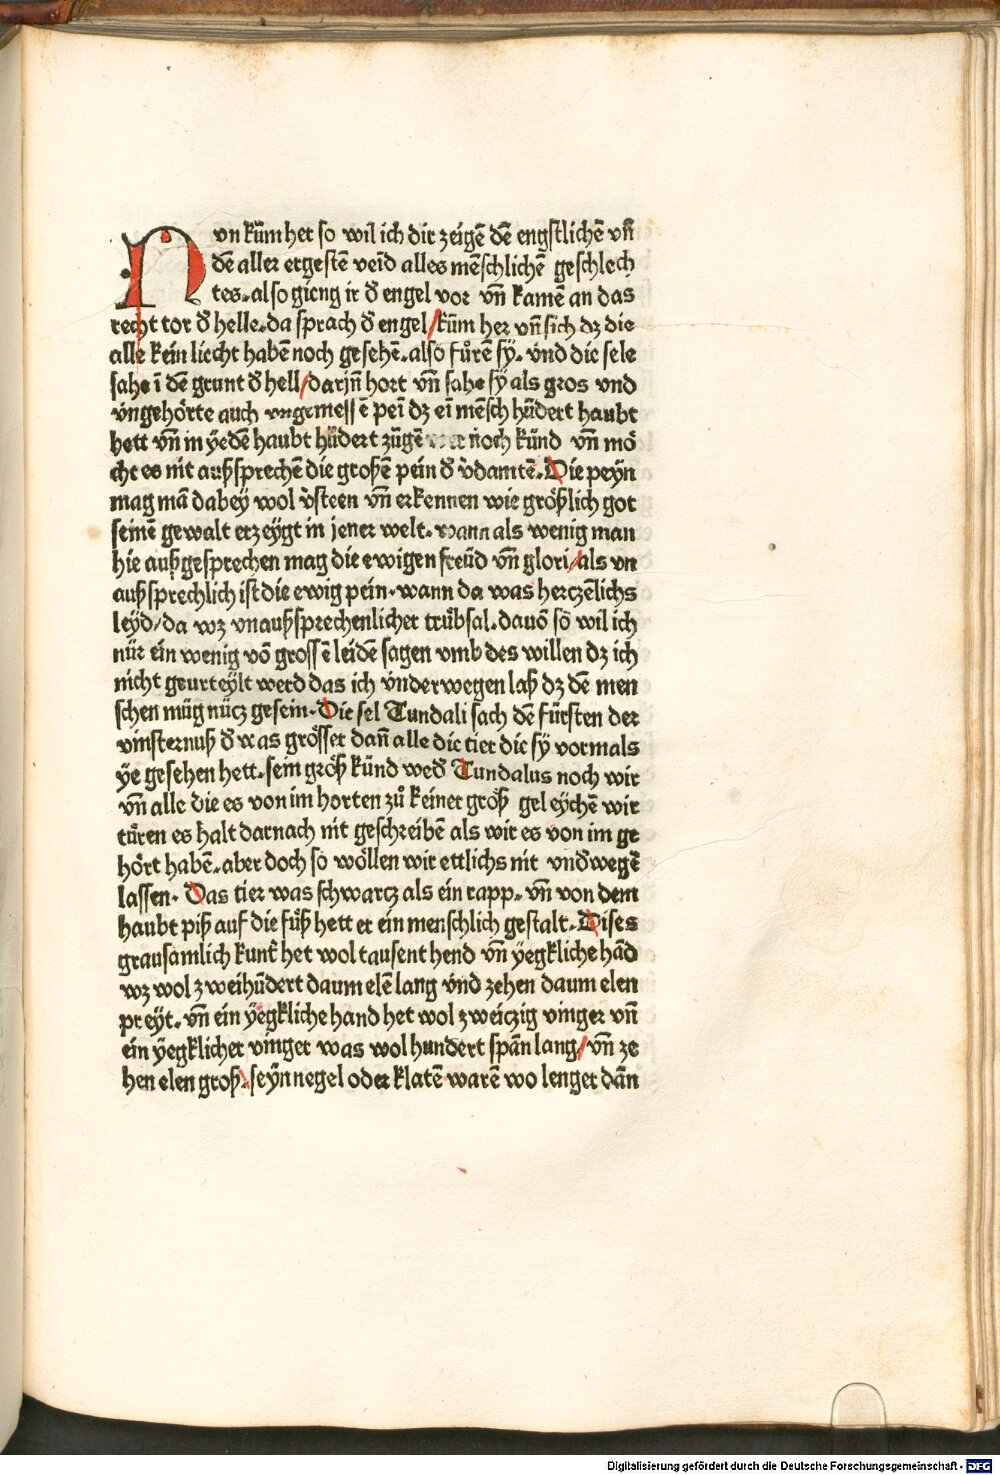 Nun kūm her so wil ich dir zeigē dē engstlichē vn̄
dē aller ergestē veīd alles mēschlichē geschlech
tes. also gieng ir d̄ engel vor vn̄ kamē an das
recht tor d̄ helle. da sprach d̄ engel / kūm her vn̄ sich dz die
alle kein liecht habē noch gesehē. also fůrē sy. vnd die sele
sahe ī dē grunt d̄ hell / darjn̄ hort vn̄ sahe sÿ als gros vnd
vngehörte auch vngemessē peī dz eī mēsch hūdert haubt
hett vn̄ in ÿedē haubt hūdert zūgē noch kūnd vn̄ mö
cht es nit außsprechē die großē pein d̄ v̉damtē. Die peÿn
mag mā dabeÿ wol v̉steen vn̄ erkennen wie größlich got
seinē gewalt erzeÿgt in jener welt. wann als wenig man
hie außgesprechen mag die ewigen freüd vn̄ glori / als vn
außsprechlich ist die ewig pein. wann da was herczēlichs
leÿd / da wz vnaußsprechenlicher trübsal. dauō so wil ich
nür ein wenig vō grossē leidē sagen vmb des willen dz ich
nicht geurteÿlt werd das ich vnderwegen laß dz dē men
schen müg nücz gesein. Die sel Tundali sach dē fürsten der
vinsternuß d̄ was grösser dan̄ alle die tier die sÿ vormals
ÿe gesehen hett. sein größ kūnd wed̄ Tundalus noch wir
vn̄ alle die es von im horten zů keiner größ geleÿchē wir
türen es halt darnach nit geschreibē als wir es von im ge
hört habē. aber doch so wöllen wir ettlichs nit vnd̄wegē
lassen. Das tier was schwartz als ein rapp. vn̄ von dem
haubt piß auf die füß hett er ein menschlich gestalt. Dises
grausamlich kunt̉ het wol tausent hend vn̄ ÿegkliche hād
wz wol zweihūdert daum elē lang vnd zehen daum elen
preÿt. vn̄ ein ÿegkliche hand het wol zweiczig vinger vn̄
ein ÿegklicher vinger was wol hundert span̄ lang / vn̄ ze
hen elen groß. seÿn negel oder klatē warē wo lenger dān
Digitalisierung gefördert durch die Deutsche Forschungsgemeinschaft - DFG